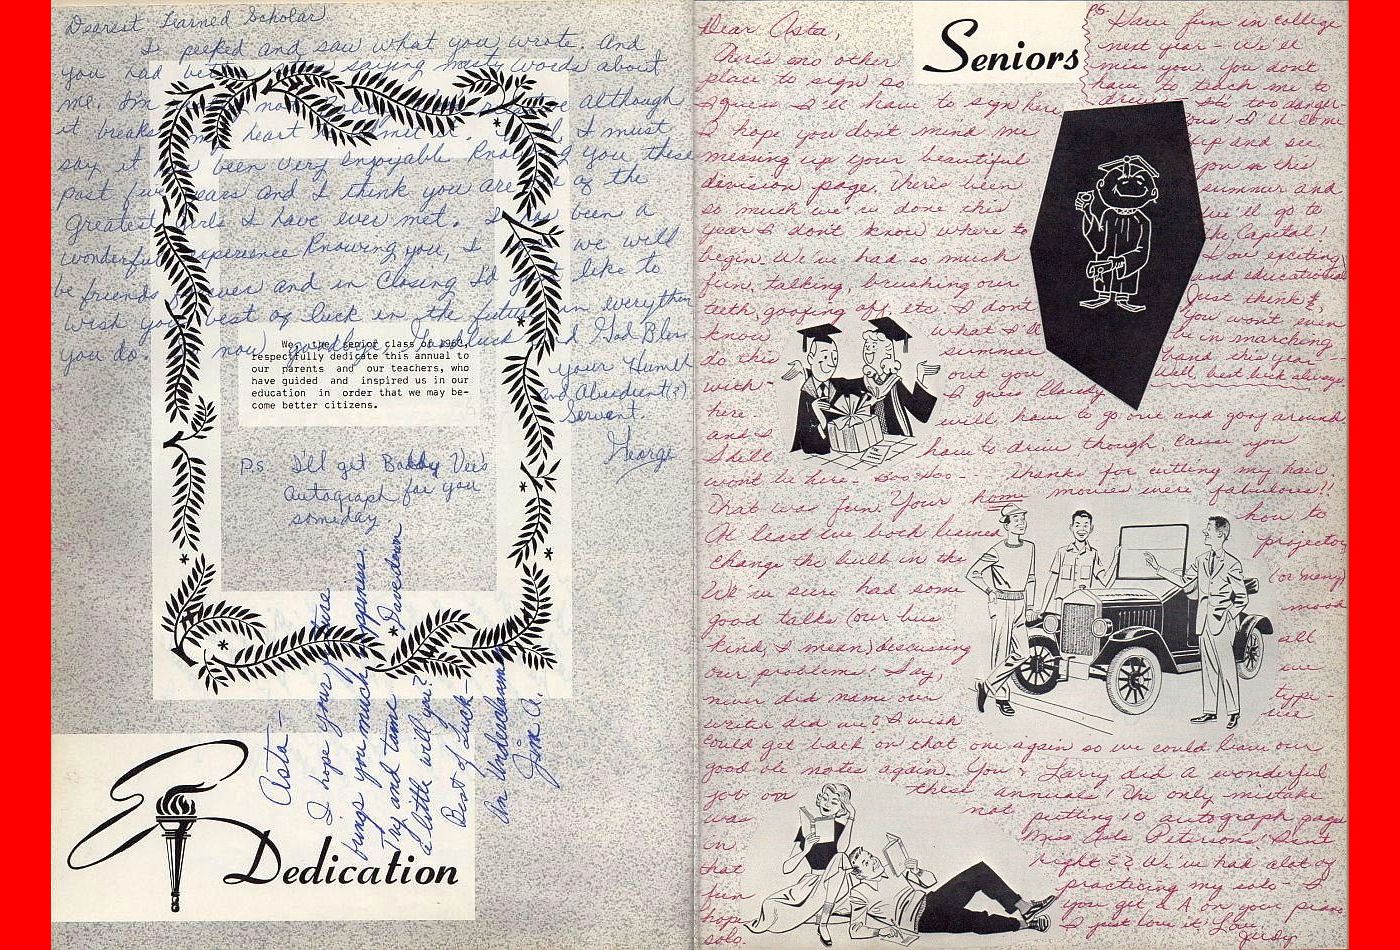 Dearest Learned Scholar
I peeked and saw what you wrote. And
you had better saying nasty words about
me. I'm although
it breaks my heart to admit it. I must
say it has been very enjoyable knowing you these
past few years and I think you are one of the
greatest girls I have ever met. It has been a
wonderful experience knowing you, I we will
be friends forever and in closing I'd just like to
wish you best of luck in the future in everything
you do. now goodbye, Good luck and God Bless
your Humble
and Obedient(?)
Servant.
George
We, the senior class of 1963,
respectfully dedicate this annual to
our parents and our teachers, who
have guided and inspired us in our
education in order that we may be-
come better citizens.
P.S. I'll get Bobby Vee's
autograph for you
someday
Asta —
I hope your future
brings you much happiness.
Try and tame Dave down
a little will you?
Best of Luck —
An Underclassman
Jim A.
Dedication
Seniors
Dear Asta,
There's no other
place to sign so
I guess I'll have to sign here.
I hope you don't mind me
messing up your beautiful
division page. There's been
so much we've done this
year I don't know where to
begin. We've had so much
fun, talking, brushing our
teeth, goofing off, etc. I don't
know what I'll
do this summer
with- out you
here I guess Claudy
and I will have to go out and goof around
I'll have to drive though, cause you
won't be here - boo, hoo - Thanks for cutting my hair
That was fun. Your home movies were fabulous!!
At least we both learned how to
change the bulb in the projector
We've sure had some (or many)
good talks (our bus mood
kind, I mean) discussing all
our problems! Say, we
never did name our type-
writer did we? I wish we
could get back on that one again so we could leave our
good ole notes again. You & Larry did a wonderful
job on these annuals! The only mistake
was not putting 10 autograph pages
in Miss Peterson!
that right?? We've had a lot of
fun practicing my solo - I
hope you get a A on your piano
solo. I just love it. Love,
Judy
P.S. Have fun in college
next year - We'll
miss you. You don't
have to teach me to
drive. It's too danger-
ous! I'll come
up and see
you in this
summer and
we'll go to
the, Capital!
How exciting
and educational
Just think,
You won't even
be in marching
band this year --
Well, best luck always